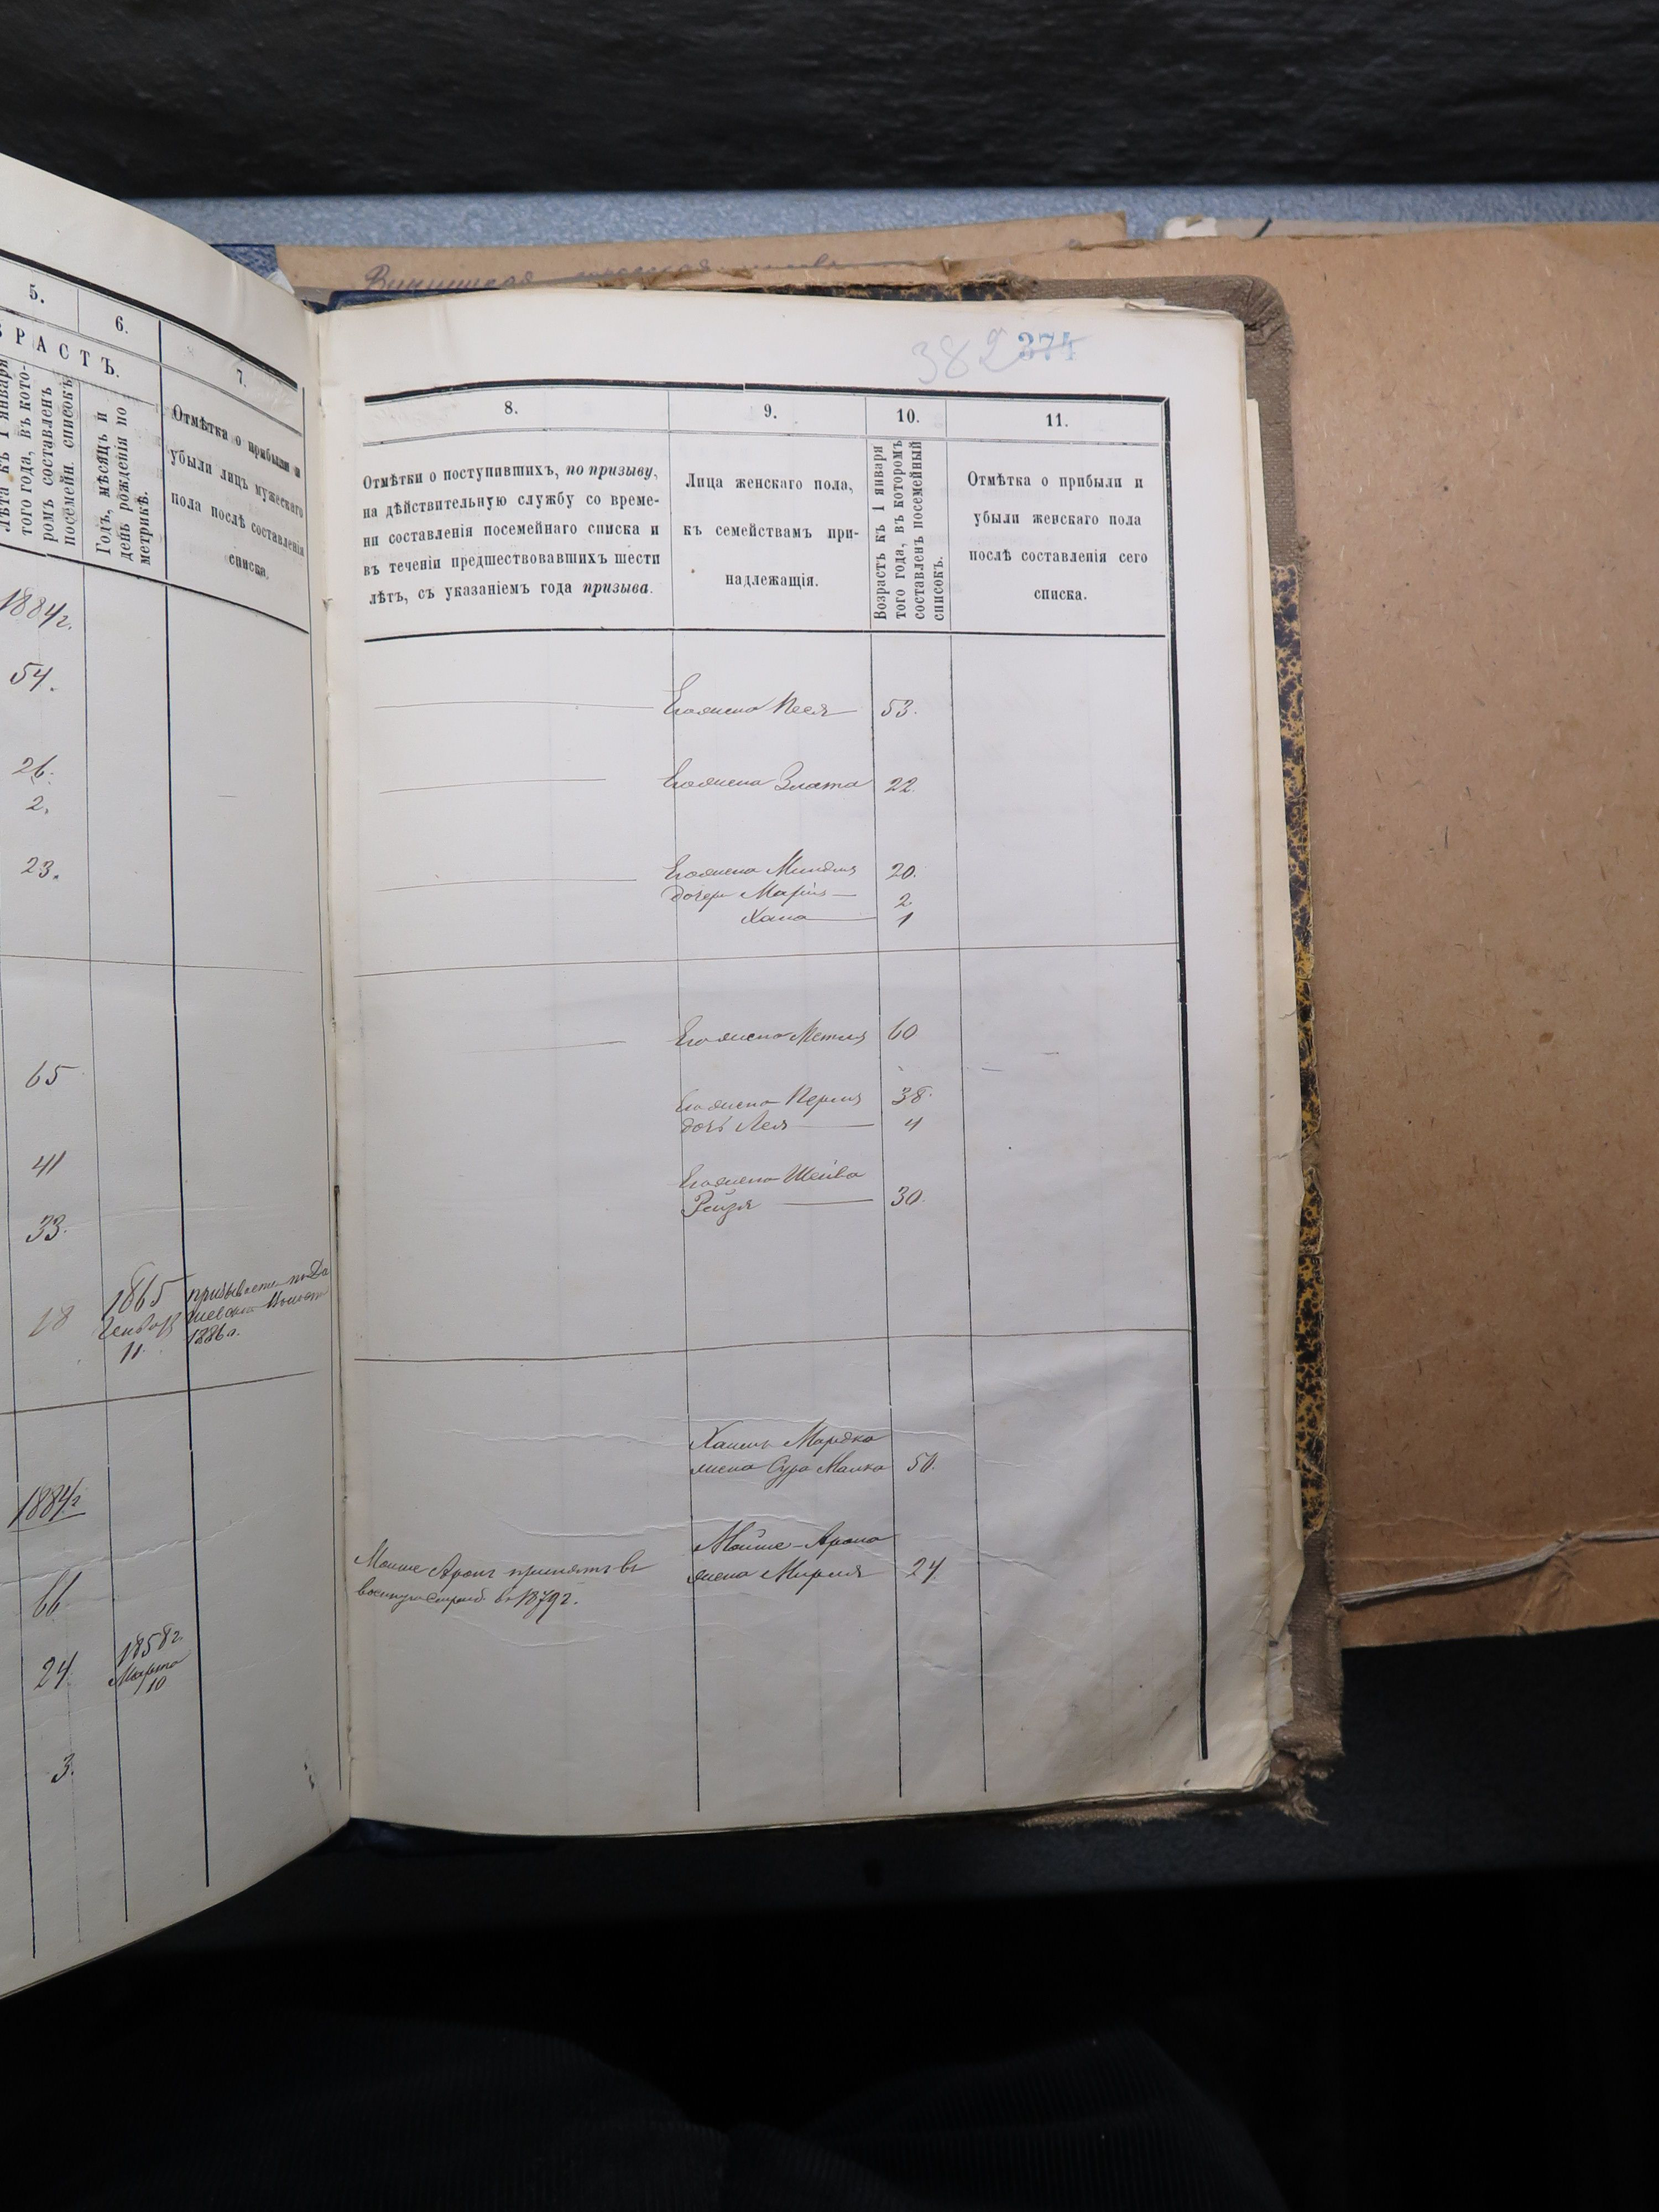 5.
6.
7.
ВРАСТЪ.
Лѣта къ 1 января
того года, въ кото-
ромъ составленъ
посемейн. списокъ
Годъ, мѣсяцъ и
день рожденія по
метрикѣ.
Отмѣтка о прибыли и
убыли лицъ мужескаго
пола послѣ составленія
списка.
1884г.
54.
26.
2.
23.
65
41
33.
18
1865
Генваря
11.
1886 г.
1884г
66
24.
1858г.
Марта
10
3.
382 374
8.
9.
10.
11.
Отмѣтки о поступившихъ, по призыву,
на дѣйствительную службу со време-
ни составленія посемейнаго списка и
въ теченіи предшествовавшихъ шести
лѣтъ, съ указаніемъ года призыва.
Лица женскаго пола,
къ семействамъ при-
надлежащія.
Возрастъ къ 1 января
того года, въ которомъ
составленъ посемейный
списокъ.
Отмѣтка о прибыли и
убыли женскаго пола
послѣ составленія сего
списка.
Его жена Песя 53.
Его жена Злата 22.
Его жена Миндля 20.
дочери Марія 2
Хана 1
Его жена Метля 60
Его жена Перля 38.
дочь Лея 4
Его жена Шейва
Рейзя 30.
Мордка
жена Сура Малка 50.
Мойше-Арона
жена Мирля 24.
Моише Аронъ принятъ въ
военную службу в 1879г.